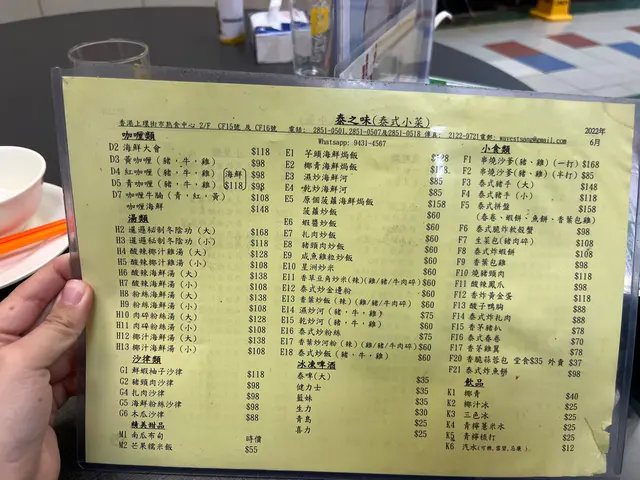 泰之味(泰式小菜)
香港上環街市熟食中心 2/F CF15號 及 CF16號 電話: 2851-0501,2851-0507及2851-0518 傳真: 2122-9721電郵: wavestsang@gmail.com
2022年
6月
Whatsapp: 9431-4567
咖喱類
D2 海鮮大會 $118
D3 黃咖喱(豬,牛,雞) $98
D4 紅咖喱(豬,牛,雞) 海鮮 $98
D5 青咖喱(豬,牛,雞) $118 $98
D7 咖喱牛腩(青,紅,黃) $108
咖喱海鮮 $148
湯類
H2 暹邏秘制冬陰功(大) $168
H3 暹邏秘制冬陰功(小) $118
H4 酸辣椰汁雞湯(大) $128
H5 酸辣椰汁雞湯(小) $108
H6 酸辣海鮮湯(大) $138
H7 酸辣海鮮湯(小) $108
H8 粉絲海鮮湯(大) $138
H9 粉絲海鮮湯(小) $108
H10 肉碎粉絲湯(大) $128
H11 肉碎粉絲湯(小) $108
H12 椰汁海鮮湯(大) $138
H13 椰汁海鮮湯(小) $108
沙律類
G1 鮮蝦柚子沙律 $118
G2 豬頸肉沙律 $98
G4 扎肉沙律 $98
G5 海鮮粉絲沙律 $98
G6 木瓜沙律 $88
精美甜品
M1 南瓜布甸 時價
M2 芒果糯米飯 $55
E1 芋頭海鮮焗飯
E2 椰青海鮮焗飯
E3 濕炒海鮮河 $85
E4 乾炒海鮮河 $85
E5 原個菠蘿海鮮焗飯 $158
菠蘿炒飯 $60
E6 蝦醬炒飯 $60
E7 扎肉炒飯 $60
E8 豬頸肉炒飯 $60
E9 咸魚雞粒炒飯 $60
E10 星洲炒米 $60
E11 香草豆角炒米(辣)(雞/豬/牛肉碎) $60
E12 泰式炒金邊粉 $60
E13 香葉炒飯(辣)(雞/豬/牛肉碎) $60
E14 濕炒河(豬,牛,雞) $75
E15 乾炒河(豬,牛,雞) $60
E16 泰式炒粉絲 $75
E17 香葉炒河粉(辣)(雞/豬/牛肉碎) $60
E18 泰式炒飯(豬,牛,雞) $60
冰凍啤酒
泰啤(大) $35
健力士 $35
藍妹 $25
生力 $30
青島 $25
喜力 $25
小食類
F1 串燒沙爹(豬,雞)(一打) $168
F2 串燒沙爹(豬,雞)(半打) $85
F3 泰式豬手(大) $148
F4 泰式豬手(小) $118
F5 泰式拼盤 $158
(春卷、蝦餅、魚餅、香葉包雞)
F6 泰式脆炸軟殼蟹 $98
F7 生菜包(豬肉碎) $108
F8 泰式炸蝦餅 $108
F9 香葉包雞 $98
F10 燒豬頸肉 $118
F11 酸辣鳳爪 $98
F12 香炸黃金蛋 $118
F13 酸子鴨胸 $88
F14 泰式炸扎肉 $88
F15 香茅豬扒 $78
F16 泰式春卷 $70
F17 香芋雞翼 $78
F20 香脆蒜蓉包 堂食$35 外賣 $37
F21 泰式炸魚餅 $98
飲品
K1 椰青 $40
K2 椰汁冰 $25
K3 三色冰 $25
K4 青檸薏米水 $25
K5 青檸梳打 $25
K6 汽水 $12